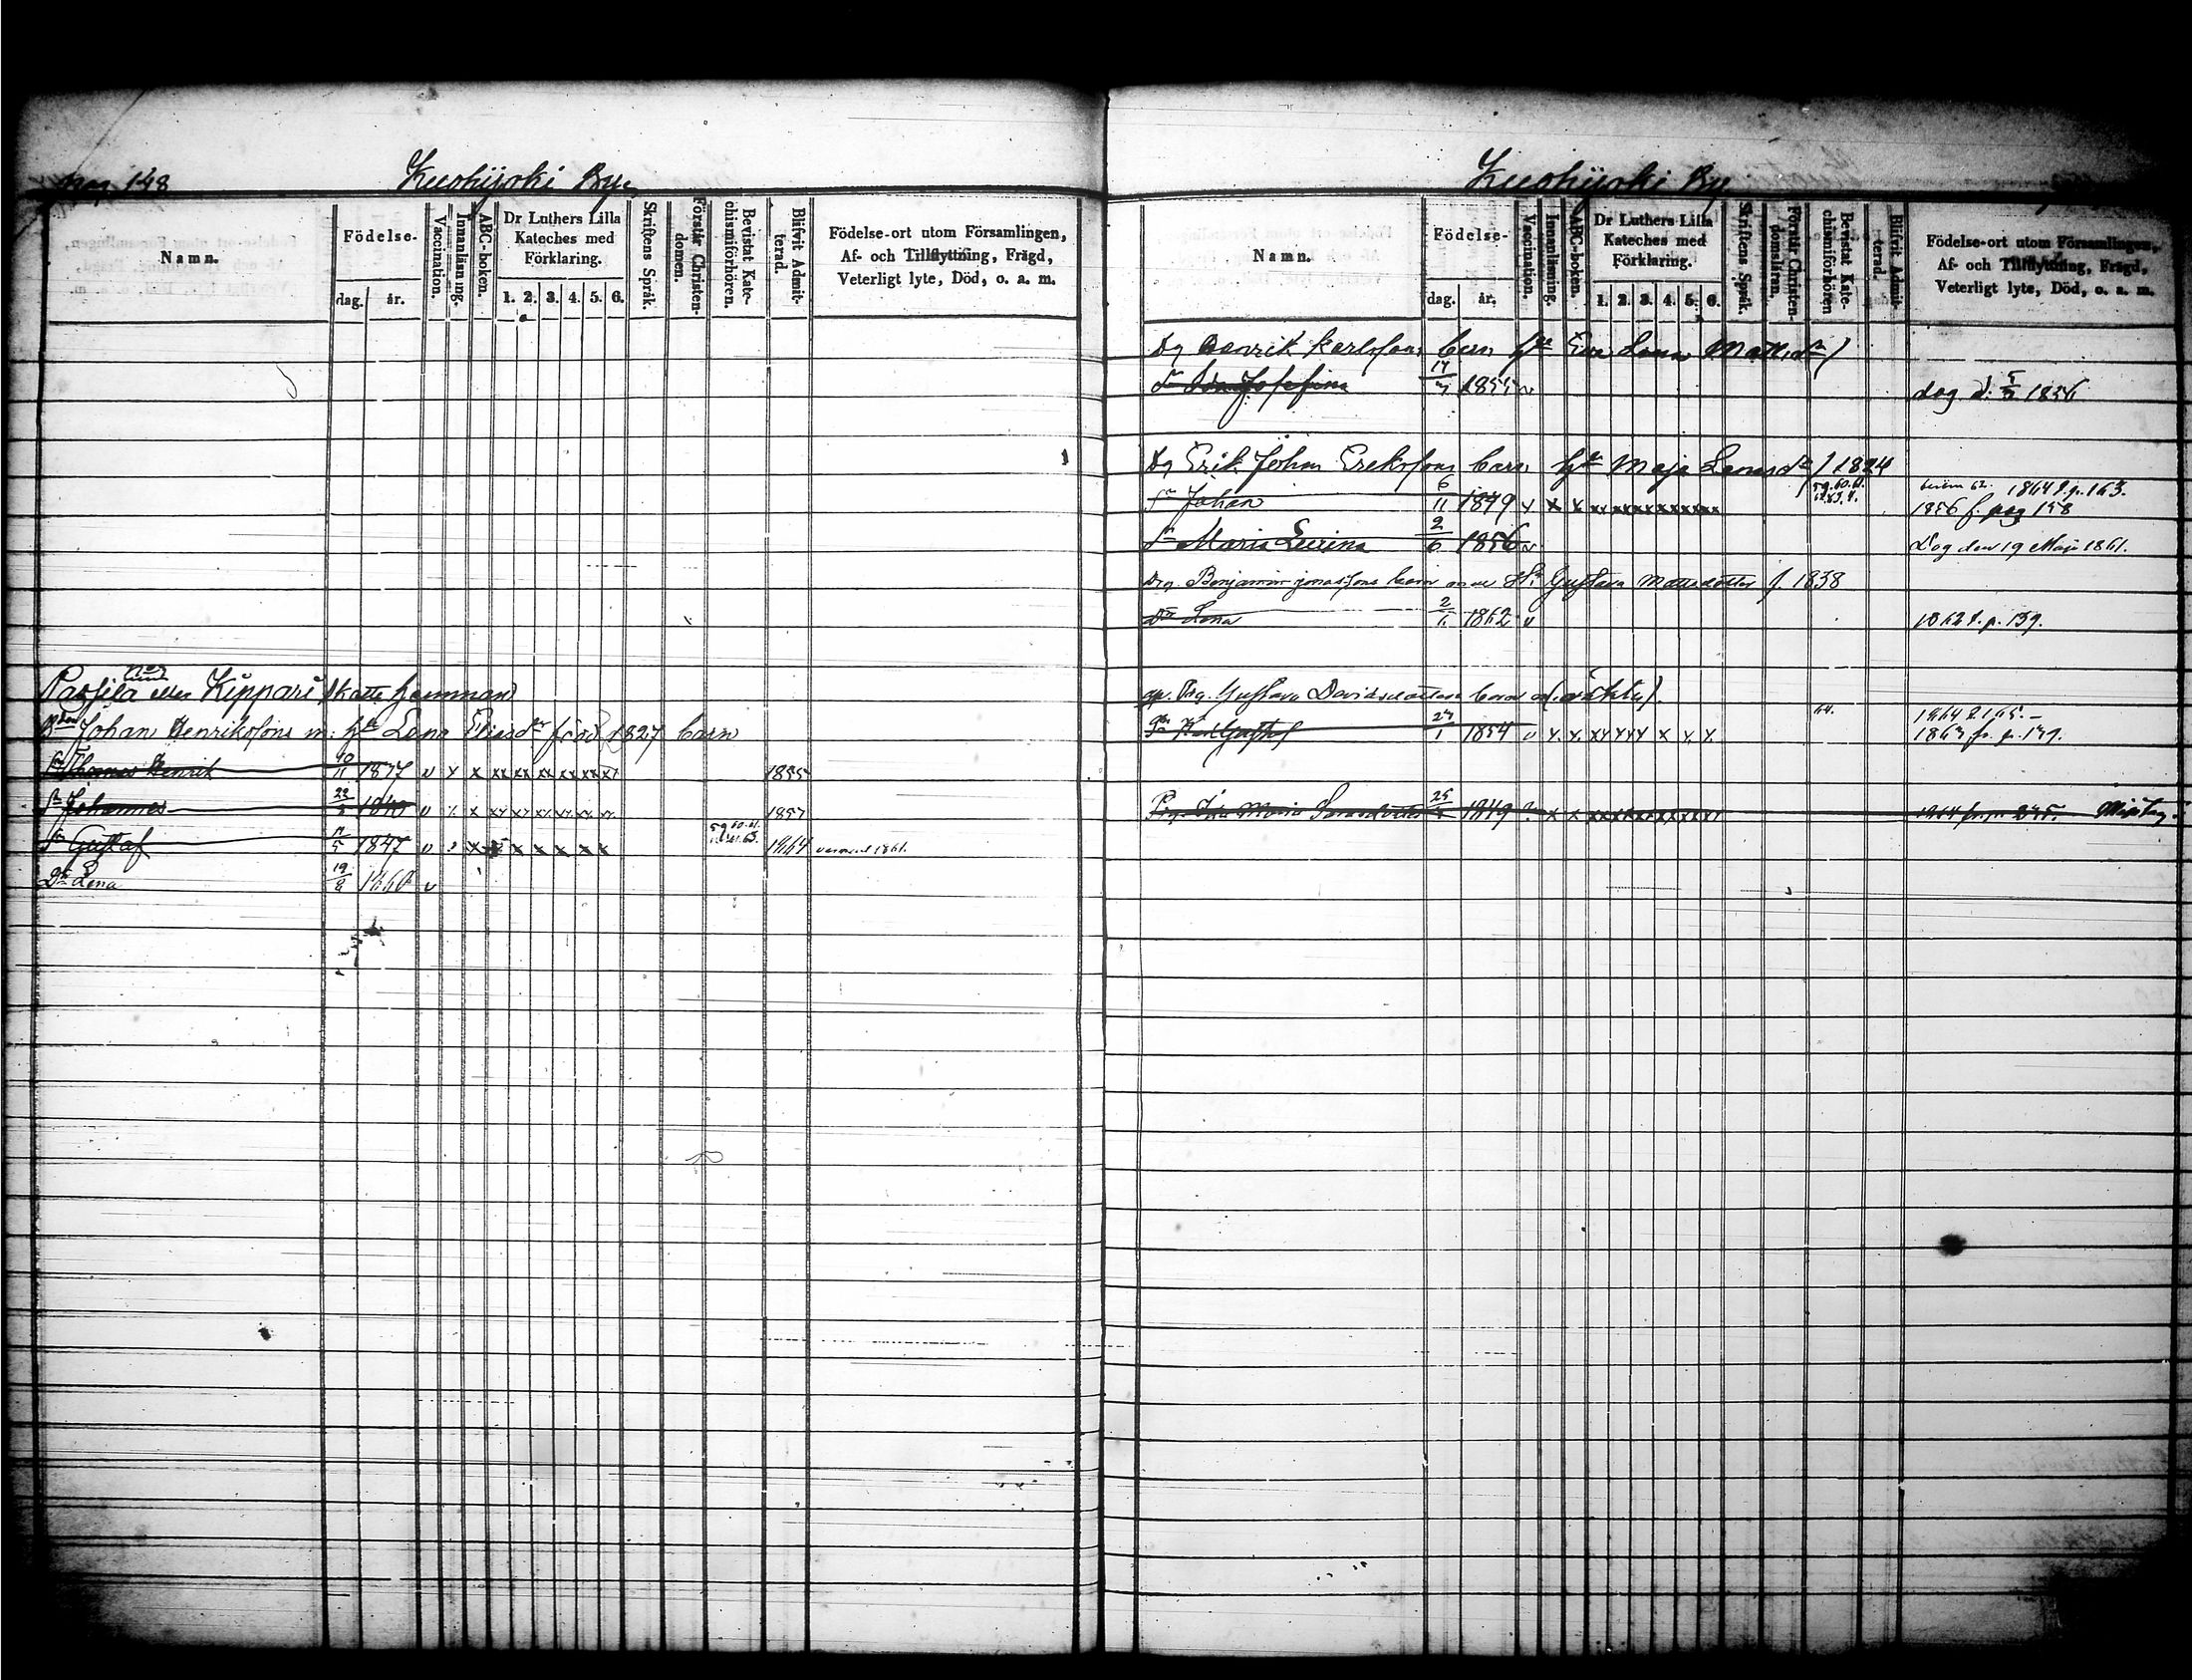 pag. 148
Kuohijoki By.
Namn.
Födelse-
dag.
år.
Vaccination.
Innanläsning.
ABC-boken.
Dr Luthers Lilla
Kateches med
Förklaring.
1. 2. 3. 4. 5. 6.
Skriftens Språk.
Förstår Christen-
domen.
Bevistat Kate-
chismiförhören.
Blifvit Admit-
terad.
Födelse-ort utom Församlingen,
Af- och Tillflyttning, Frägd,
Veterligt lyte, Död, o. a. m.
Passila eller Kippari skatte hemman
Johan Henrikssons m. Lena Eliasdr född 1827 barn
Sn Thomas Henrik 10/11 1837 v x x xx xx xx xx xx xx 1855
Sn Johannes 22/3 1840 v x x xx xx xx xx xx xx 1857
Sn Gustaf 5 1847 v x x x x x x 1864
Dr Lena 19/8 1860 v
Kuohijoki By.
Namn.
Födelse-
dag.
år.
Vaccination.
Innanläsning.
ABC-boken.
Dr Luthers Lilla
Kateches med
Förklaring.
1. 2. 3. 4. 5. 6.
Skriftens Språk.
Förstår Christen-
domsläran.
Bevistat Kate-
chismiförhören
Blifvit Admit-
terad.
Födelse-ort utom Församlingen,
Af- och Tillflyttning, Frägd,
Veterligt lyte, Död, o. a. m.
Dg Henrik Karlssons barn Eva Lena Mattsdr
Josefina 17/7 1855 v dog d. 1856
Dg Erik Johan Erikssons barn Maja Leensdr f 1824
59.60.61. 1864 t. p. 163.
Sn Johan 6/11 1849 v x x xx xx xx xx xx xx 1856 f. pag 158
Maria Leerina 2/6 1856 v Dog den 19 Maji 1861.
Drg. Benjamin Jonassons barn Gustava Mattsdotter f. 1838
Dr Lena 2/1 1862 v 1862 t. p. 139.
Gustava Davidsdotters barn (oäkta).
64. 1864 t. 165.
Karl Gustaf 27/1 1854 v x. x. xx xx x x x. x. 1863 fr. p. 139.
Maria 25 1849 x x xx xx xx xx xx xx 1864 fr. p. 235. Mistag.